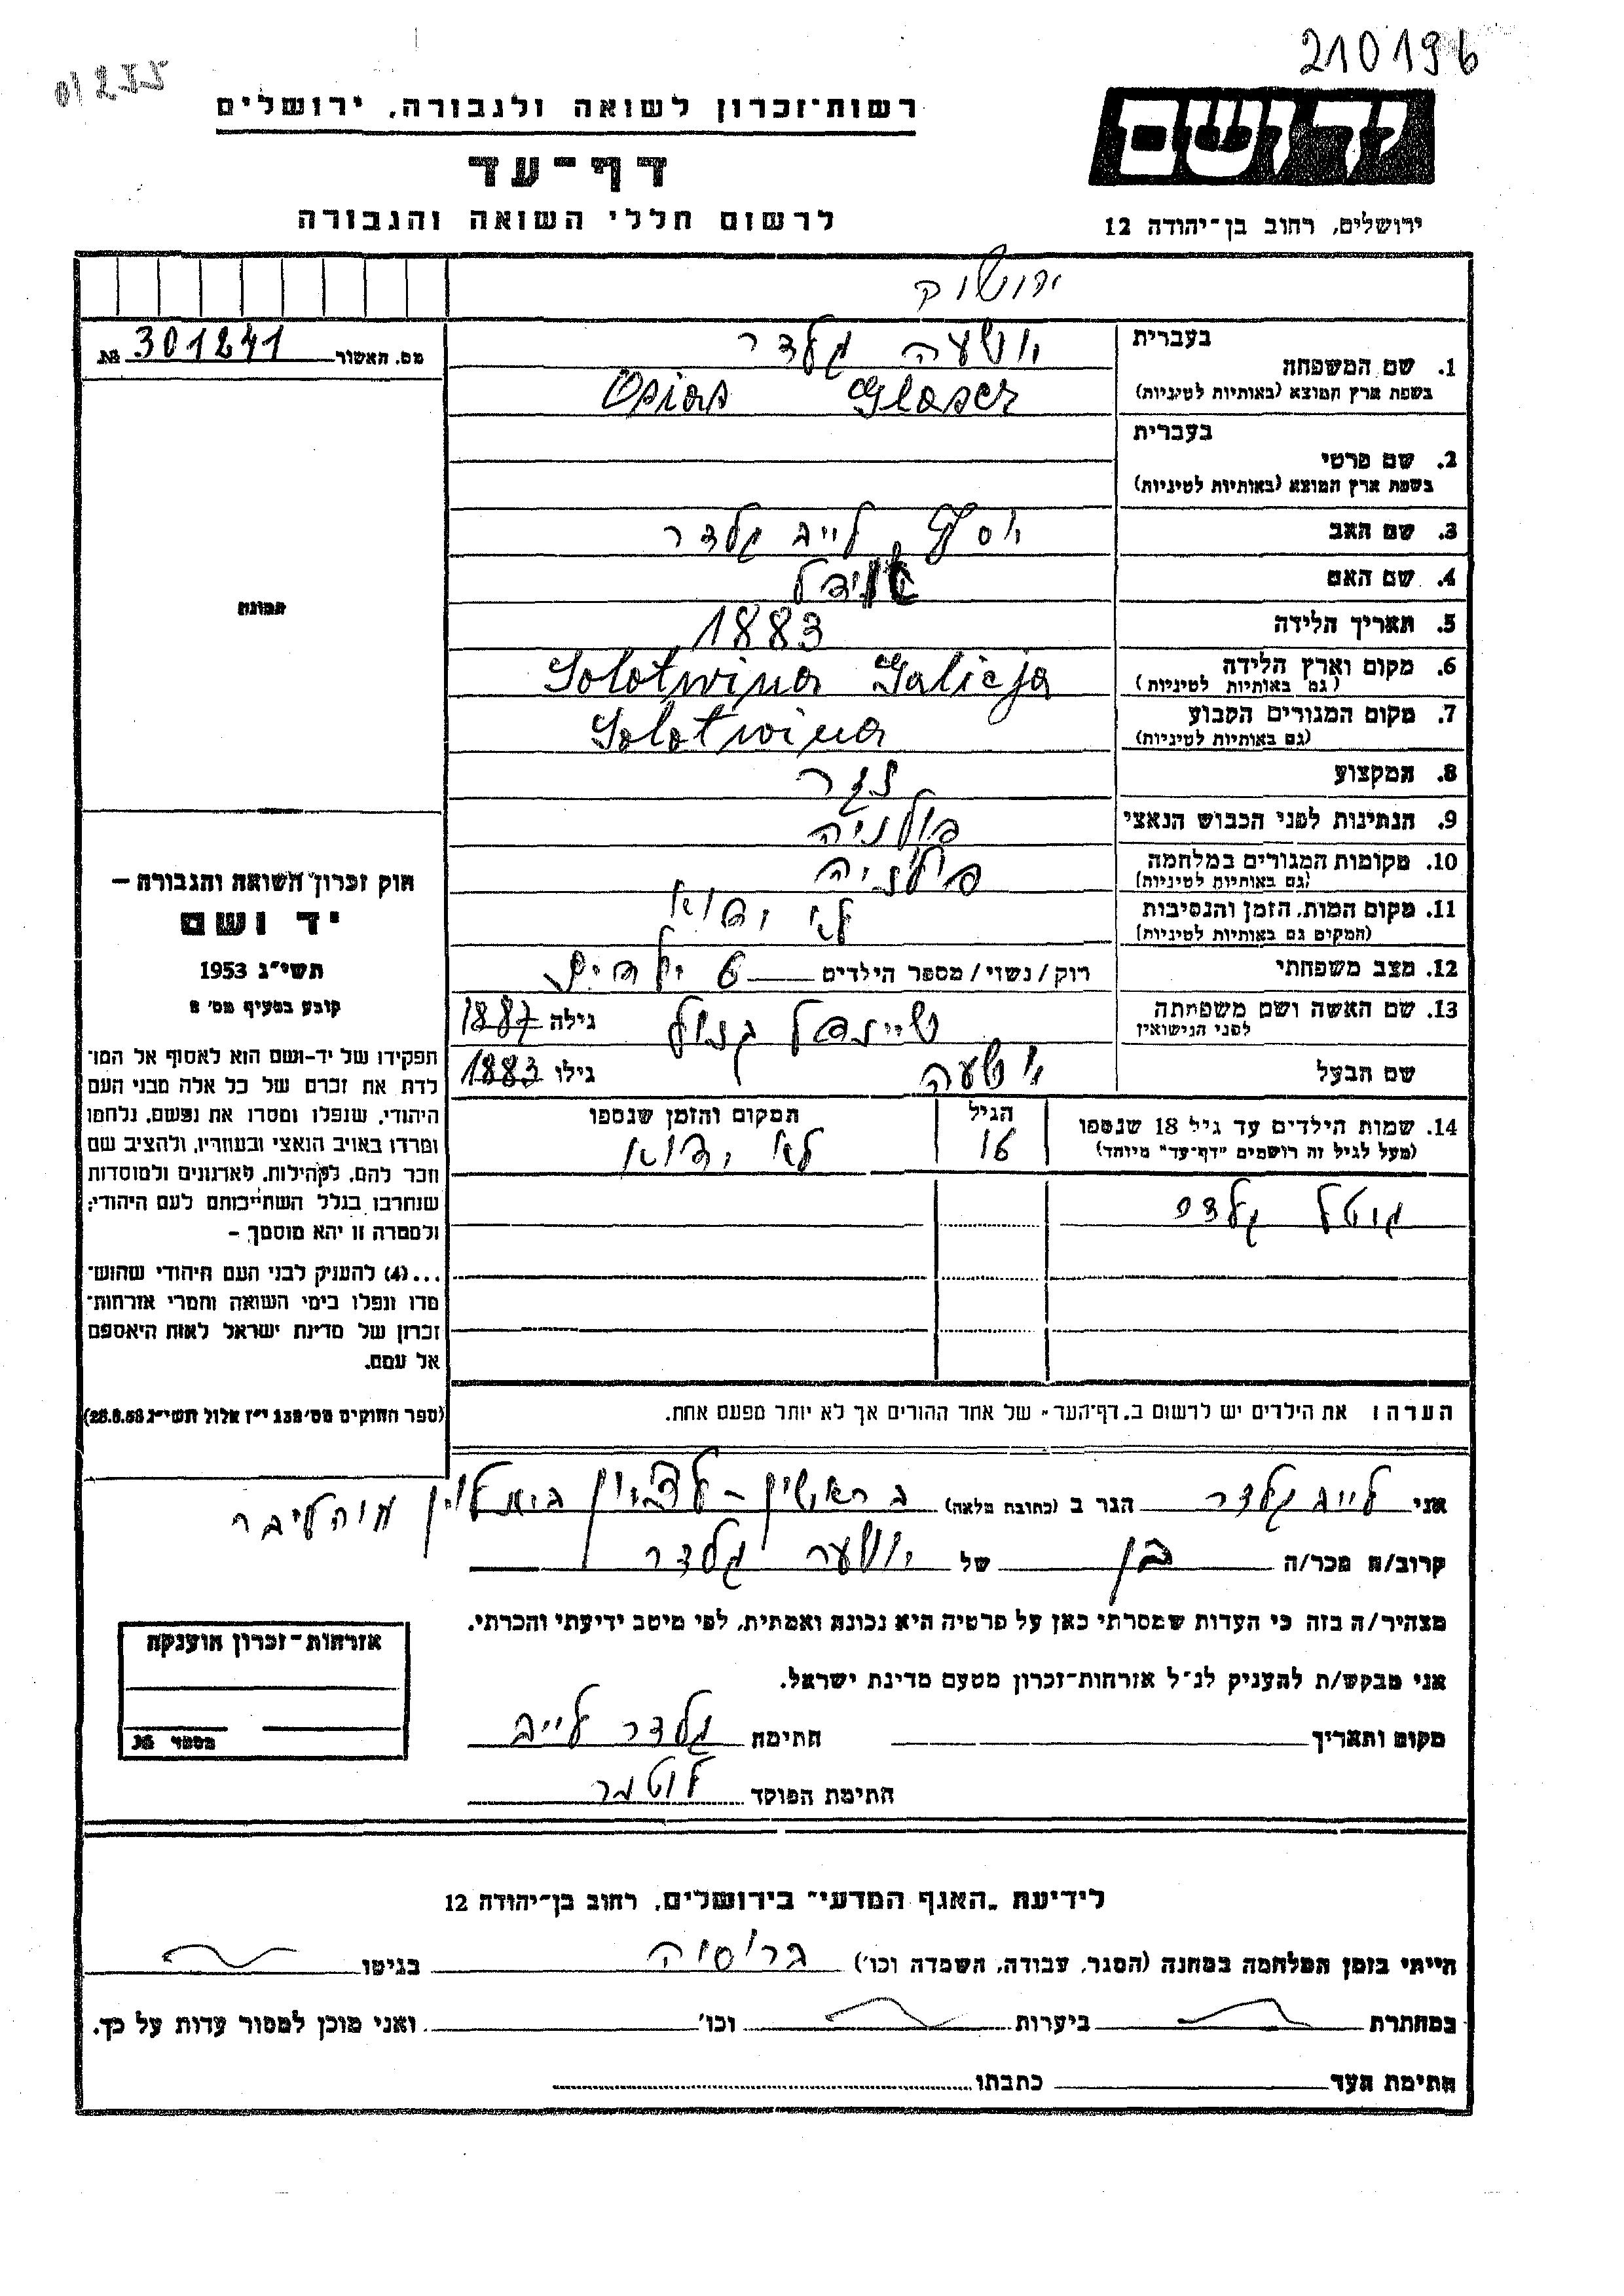 210196
01255
רשות־זכרון לשואה ולגבורה, ירושלים
יד ושם
דף־עד
לרשום חללי השואה והגבורה
ירושלים, רחוב בן־יהודה 12
מס. האשור № 301241
בעברית
1. שם המשפחה
(בשפת ארץ המוצא (באותיות לטיניות
Osias Glaser
בעברית
2. שם פרטי
(בשפת ארץ המוצא (באותיות לטיניות
3. שם האב יוסף לייב גלזר
4. שם האם
5. תאריך הלידה 1883
6. מקום וארץ הלידה Solotwina Galicja
(גם באותיות לטיניות)
7. מקום המגורים הקבוע Solotwina
(גם באותיות לטיניות)
8. המקצוע נגר
9. הנתינות לפני הכבוש הנאצי פולניה
10. מקומות המגורים במלחמה פולניה
(גם באותיות לטיניות)
11. מקום המות, הזמן והנסיבות לא ידוע
(המקום גם באותיות לטיניות)
12. מצב משפחתי רוק/נשוי/מספר הילדים 6 ילדים
13. שם האשה ושם משפחתה שיינדל גילה 1887
לפני הנישואין
שם הבעל יושעה גילו 1883
14. שמות הילדים עד גיל 18 שנספו הגיל המקום והזמן שנספו
(מעל לגיל זה רושמים "דף־עד" מיוחד) 16 לא ידוע
תמונה
חוק זכרון השואה והגבורה –
יד ושם
תשי"ג 1953
קובע בסעיף מס׳ 2
תפקידו של יד־ושם הוא לאסוף אל המו־
לדת את זכרם של כל אלה מבני העם
היהודי, שנפלו ומסרו את נפשם, נלחמו
ומרדו באויב הנאצי ובעוזריו, ולהציב שם
וזכר להם, לקהילות, לארגונים ולמוסדות
שנחרבו בגלל השתייכותם לעם היהודי;
ולמטרה זו יהא מוסמך –
...(4) להעניק לבני העם היהודי שהוש־
מדו ונפלו בימי השואה והמרי אזרחות־
זכרון של מדינת ישראל לאות היאספם
אל עמם.
(ספר החוקים מס׳ 132 י"ז אלול תשי"ג 28.8.53)
הערה: את הילדים יש לרשום ב„דף־העד" של אחד ההורים אך לא יותר מפעם אחת.
אני לייב גלזר הגר ב (כתובת מלאה)
קרוב/ה מכר/ה בן של יושעה גלזר
מצהיר/ה בזה כי העדות שמסרתי כאן על פרטיה היא נכונה ואמתית, לפי מיטב ידיעתי והכרתי.
אני מבקש/ת להעניק לנ"ל אזרחות־זכרון מטעם מדינת ישראל.
מקום ותאריך חתימה גלזר לייב
חתימת הפוקד
אזרחות־זכרון הוענקה
מספר №
לידיעת „האגף המדעי" בירושלים, רחוב בן־יהודה 12
הייתי בזמן המלחמה במחנה (הסגר, עבודה, השמדה וכו׳) ברוסיה בגיטו
במחתרת ביערות וכו׳ ואני מוכן למסור עדות על כך.
חתימת העד כתבתו